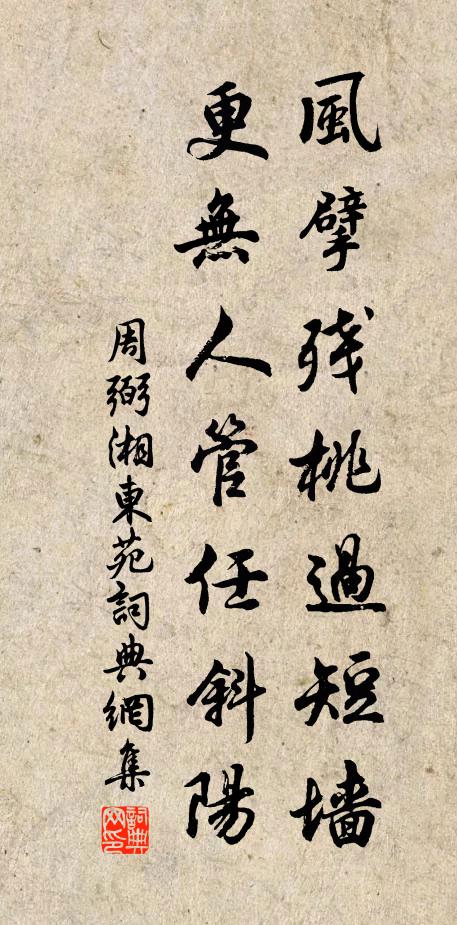 風擘殘桃過短墻
更無人管任斜陽
周弼湘東苑詞典網集
詞典网印